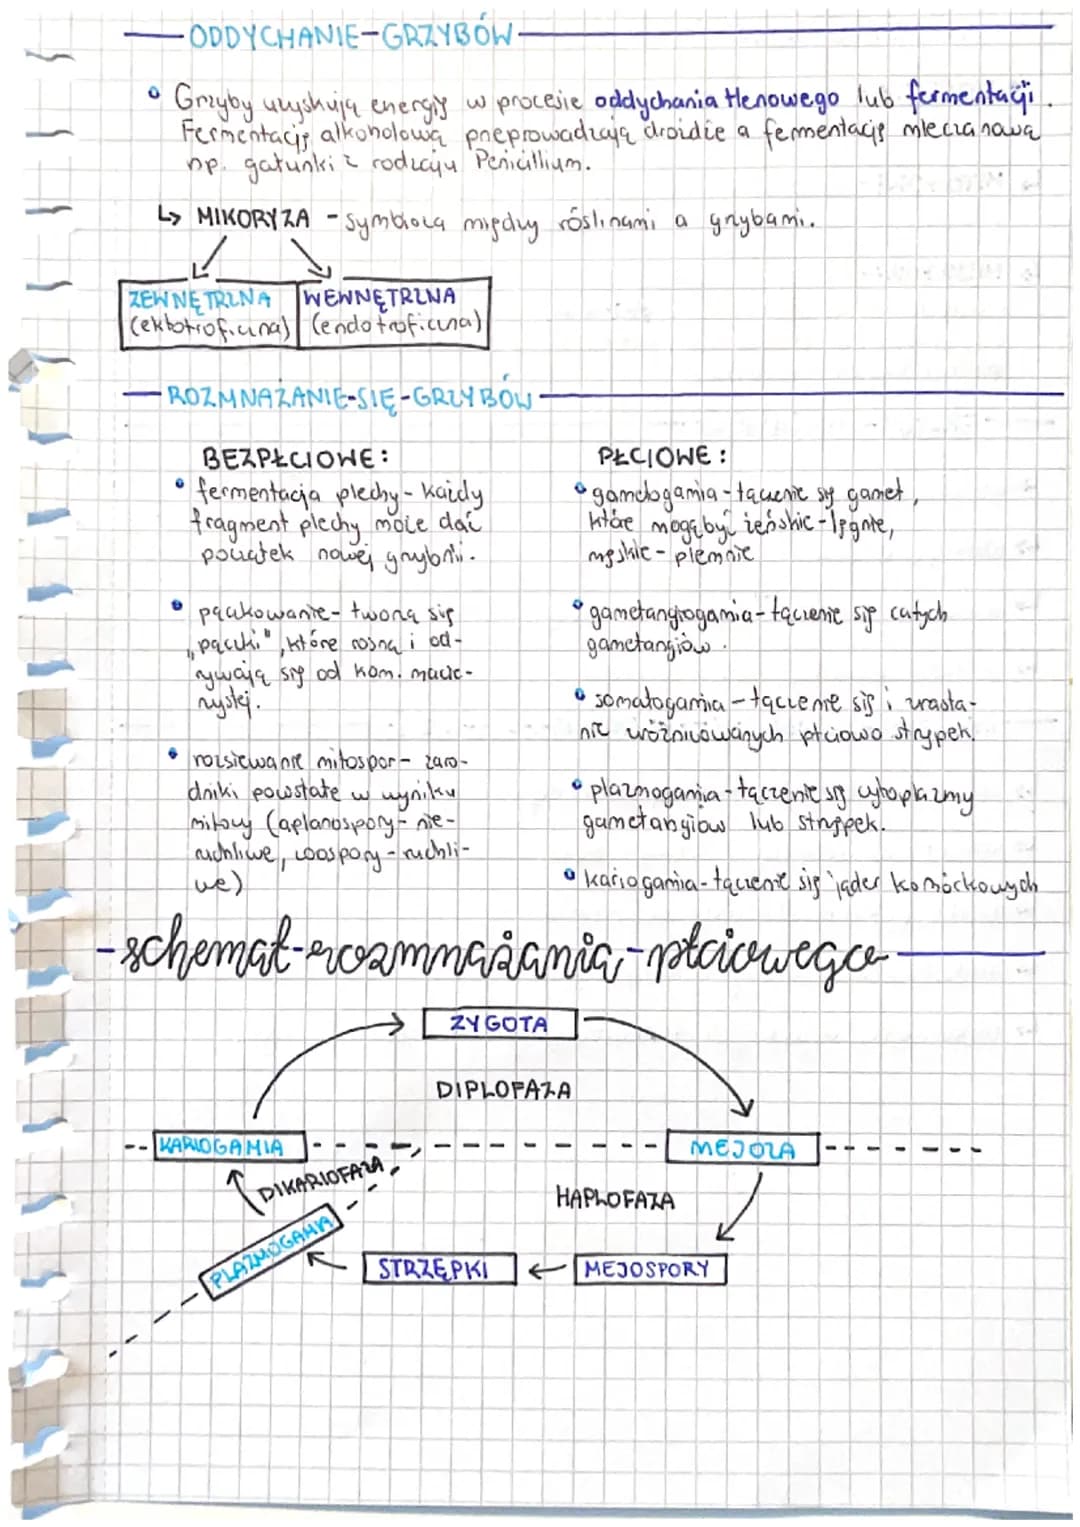 ODDYCHANIE-GRZYBÓW
Grzyby uzyskują energię w procesie oddychania tlenowego lub fermentacji.
Fermentację alkoholową przeprowadzają drożdże a fermentację mleczanową
np. gatunki z rodzaju Penicillium.
↳ MIKORYZA - symbioza między roślinami a grzybami.
ZEWNĘTRZNA
(ektotroficzna)
WEWNĘTRZNA
(endotroficzna)
ROZMNAŻANIE-SIĘ-GRZYBÓW
BEZPŁCIOWE:
• fermentacja plechy - każdy
fragment plechy może dać
początek nowej grzybni.
• pączkowanie - tworzą się
„pączki", które rosną i od-
rywają się od kom. macie-
rzystej.
• rozsiewanie mitospor - zaro-
dniki powstałe w wyniku
mitozy (aplanospory - nie-
ruchliwe, zoospory - ruchli-
we)
PŁCIOWE:
• gametogamia - łączenie się gamet,
które mogą być żeńskie - lęgnie,
męskie - plemnie
• gametangiogamia - łączenie się całych
gametangiów.
• somatogamia - łączenie się i zrasta-
nie zróżnicowanych płciowo strzępek.
• plazmogamia - łączenie się cytoplazmy
gametangiów lub strzępek.
• kariogamia - łączenie się jąder komórkowych
-schemat-rozmnażania-płciowego-
ZYGOTA
DIPLOFAZA
KARIOGAMIA
MEJOZA
DIKARIOFAZA
HAPLOFAZA
PLAZMOGAMIA
STRZĘPKI
MEJOSPORY